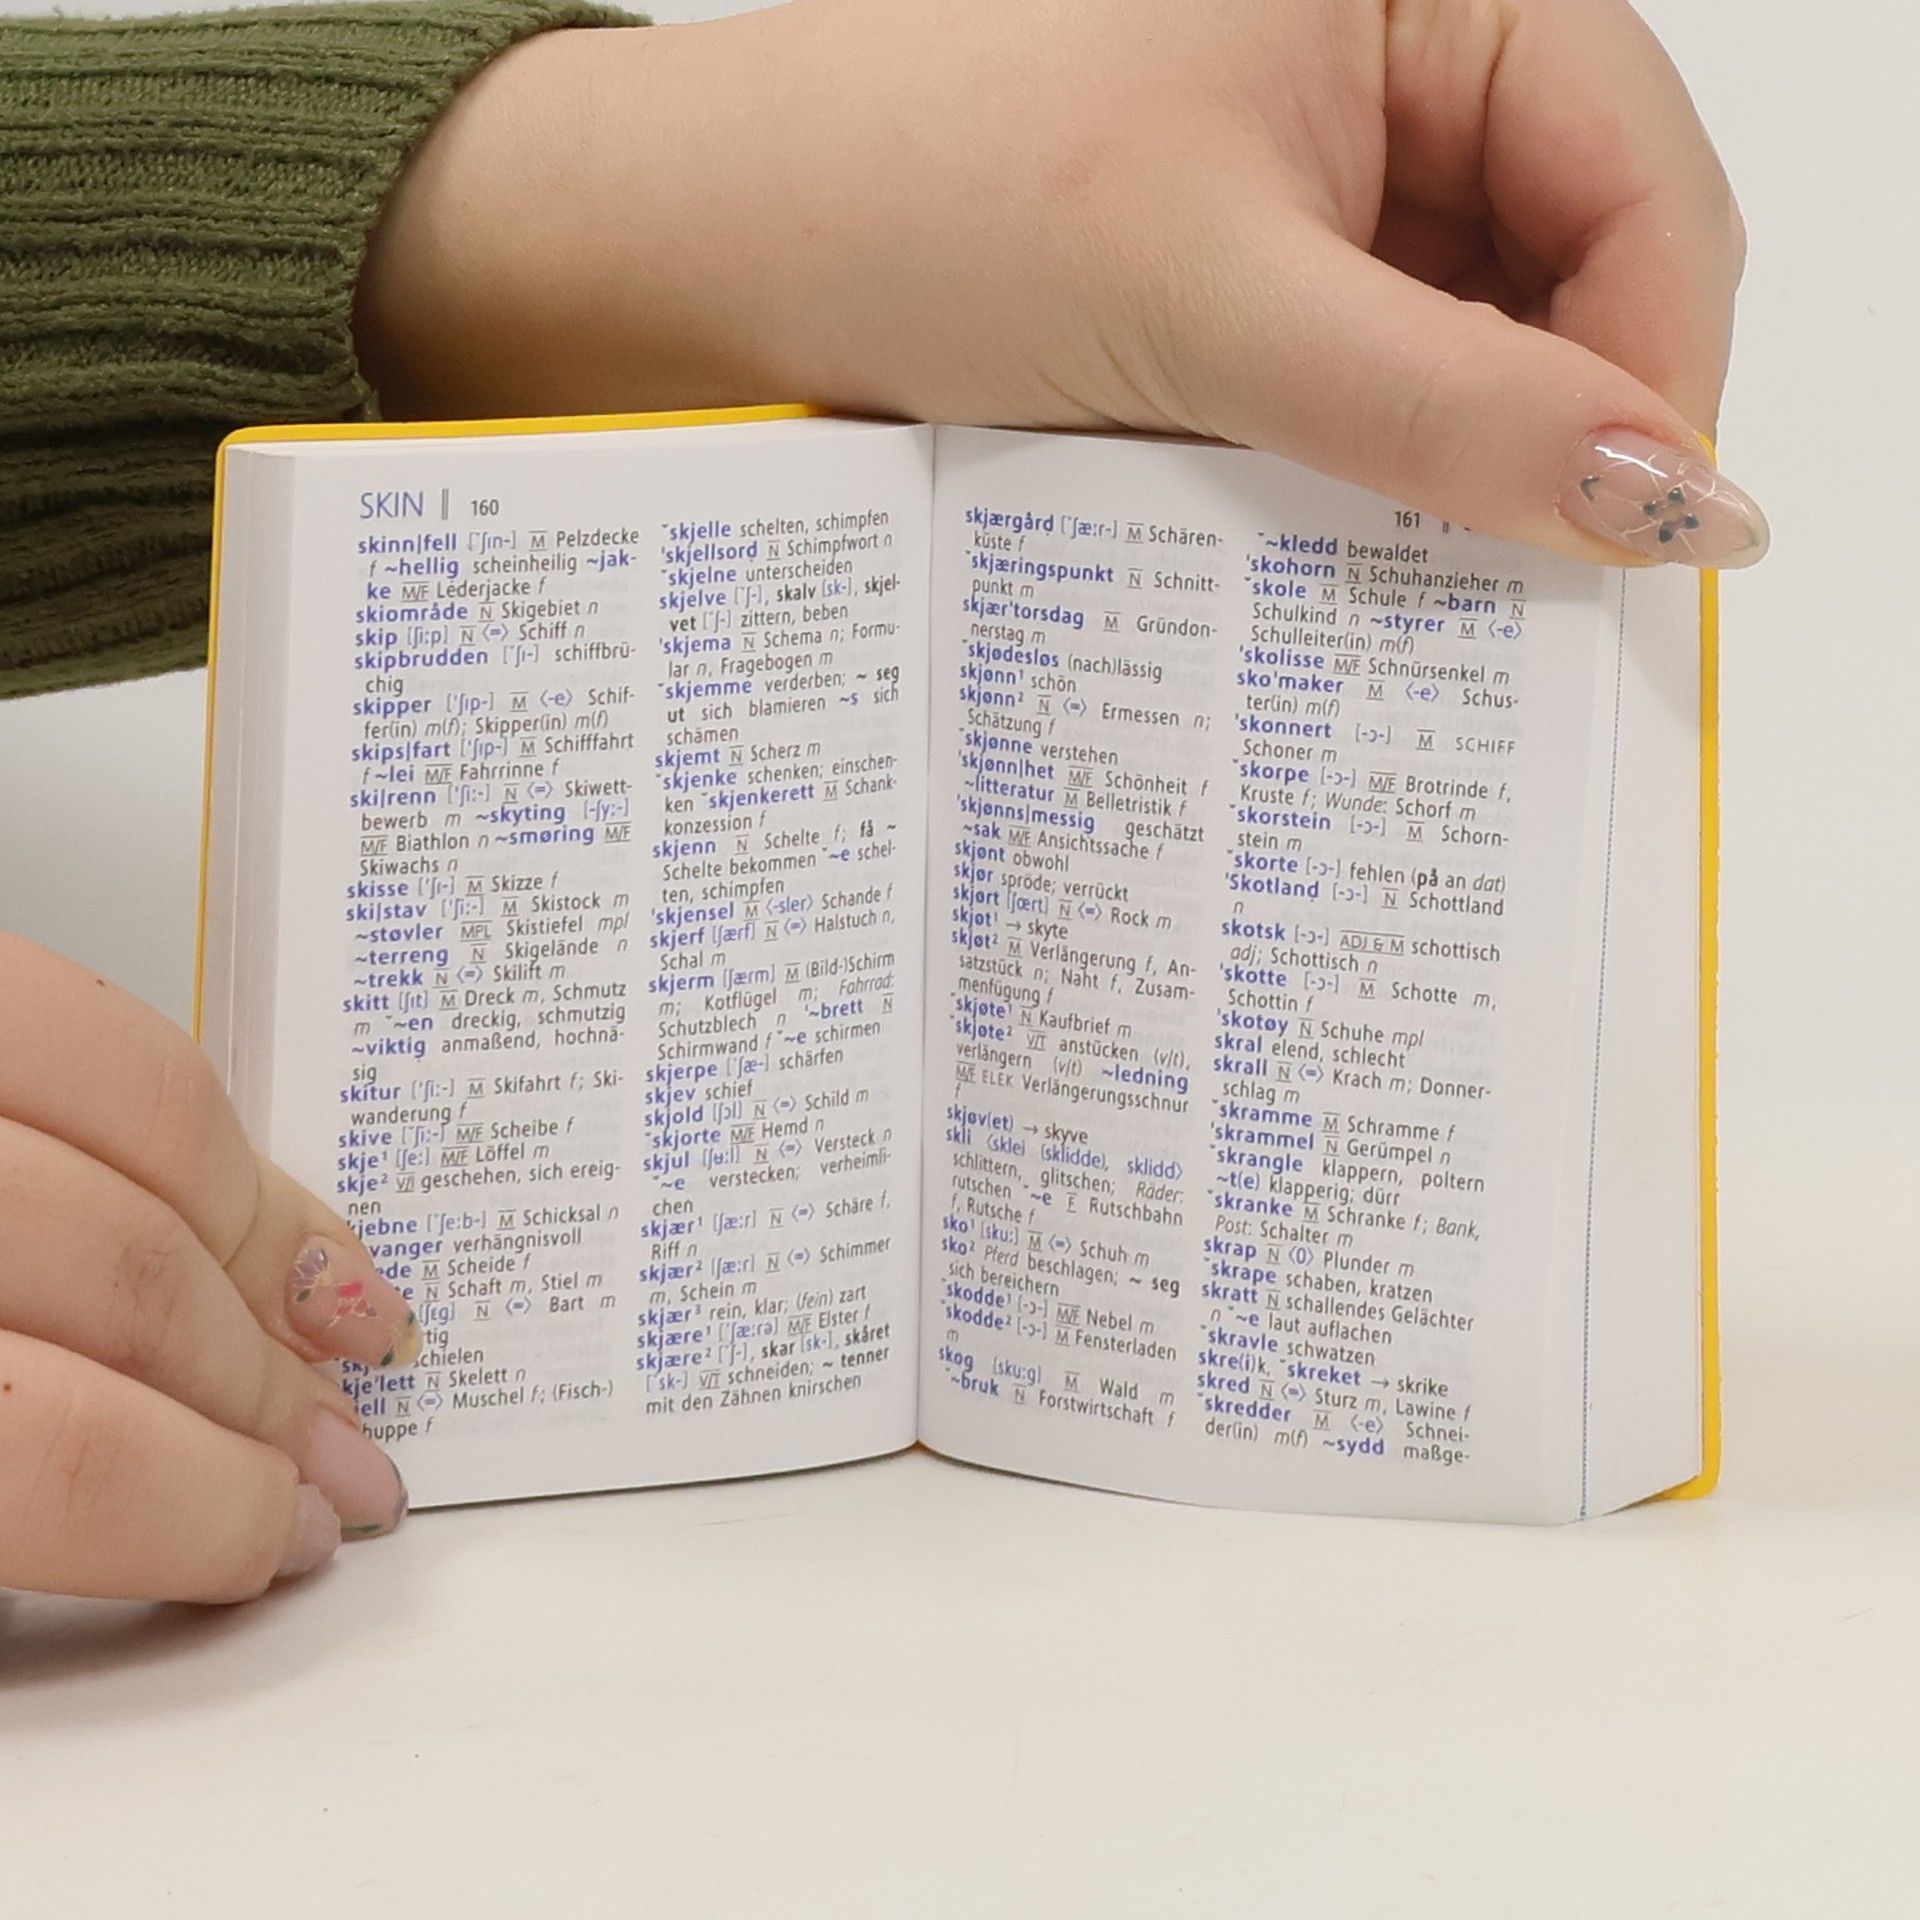 SKIN ‖ 160
skinn|fell [˝ʃɪn-] M Pelzdecke
f ~hellig scheinheilig ~jak-
ke M/F Lederjacke f
skiområde N Skigebiet n
skip [ʃiːp] N <=> Schiff n
skipbrudden [˝ʃɪ-] schiffbrü-
chig
skipper ['ʃɪp-] M <-e> Schif-
fer(in) m(f); Skipper(in) m(f)
skips|fart ['ʃɪp-] M Schifffahrt
f ~lei M/F Fahrrinne f
ski|renn ['ʃiː-] N <=> Skiwett-
bewerb m ~skyting [-ʃyː-]
M/F Biathlon n ~smøring M/F
Skiwachs n
skisse ['ʃɪ-] M Skizze f
ski|stav ['ʃiː-] M Skistock m
~støvler MPL Skistiefel mpl
~terreng N Skigelände n
~trekk N <=> Skilift m
skitt [ʃɪt] M Dreck m, Schmutz
m ˝~en dreckig, schmutzig
~viktig anmaßend, hochnä-
sig
skitur ['ʃiː-] M Skifahrt f; Ski-
wanderung f
skive [˝ʃiː-] M/F Scheibe f
skje¹ [ʃeː] M/F Löffel m
skje² V/I geschehen, sich ereig-
nen
kjebne [˝ʃeːb-] M Schicksal n
vanger verhängnisvoll
ede M Scheide f
e N Schaft m, Stiel m
[ʃɛg] N <=> Bart m
tig
schielen
kje'lett N Skelett n
jell N <=> Muschel f; (Fisch-)
huppe f
˝skjelle schelten, schimpfen
'skjellsord N Schimpfwort n
˝skjelne unterscheiden
skjelve [˝ʃ-], skalv [sk-], skjel-
vet [˝ʃ-] zittern, beben
'skjema N Schema n; Formu-
lar n, Fragebogen m
˝skjemme verderben; ~ seg
ut sich blamieren ~s sich
schämen
skjemt N Scherz m
˝skjenke schenken; einschen-
ken ˝skjenkerett M Schank-
konzession f
skjenn N Schelte f; få ~
Schelte bekommen ˝~e schel-
ten, schimpfen
'skjensel M <-sler> Schande f
skjerf [ʃærf] N <=> Halstuch n,
Schal m
skjerm [ʃærm] M (Bild-)Schirm
m; Kotflügel m; Fahrrad:
Schutzblech n '~brett N
Schirmwand f ˝~e schirmen
skjerpe [˝ʃæ-] schärfen
skjev schief
skjold [ʃɔl] N <=> Schild m
˝skjorte M/F Hemd n
skjul [ʃʉːl] N <=> Versteck n
˝~e verstecken; verheimli-
chen
skjær¹ [ʃæːr] N <=> Schäre f,
Riff n
skjær² [ʃæːr] N <=> Schimmer
m, Schein m
skjær³ rein, klar; (fein) zart
skjære¹ [˝ʃæːrə] M/F Elster f
skjære² [˝ʃ-], skar [sk-], skåret
[˝sk-] V/T schneiden; ~ tenner
mit den Zähnen knirschen
161 ‖
skjærgård [˝ʃæːr-] M Schären-
küste f
˝skjæringspunkt N Schnitt-
punkt m
skjær'torsdag M Gründon-
nerstag m
˝skjødesløs (nach)lässig
skjønn¹ schön
skjønn² N <=> Ermessen n;
Schätzung f
˝skjønne verstehen
'skjønn|het M/F Schönheit f
~litteratur M Belletristik f
'skjønns|messig geschätzt
~sak M/F Ansichtssache f
skjønt obwohl
skjør spröde; verrückt
skjørt [ʃœrt] N <=> Rock m
skjøt¹ → skyte
skjøt² M Verlängerung f, An-
satzstück n; Naht f, Zusam-
menfügung f
˝skjøte¹ N Kaufbrief m
˝skjøte² V/T anstücken (v/t),
verlängern (v/t) ~ledning
M/F ELEK Verlängerungsschnur
f
skjøv(et) → skyve
skli <sklei (sklidde), sklidd>
schlittern, glitschen; Räder:
rutschen ˝~e F Rutschbahn
f, Rutsche f
sko¹ [skuː] M <=> Schuh m
sko² Pferd beschlagen; ~ seg
sich bereichern
˝skodde¹ [-ɔ-] M/F Nebel m
˝skodde² [-ɔ-] M Fensterladen
m
skog [skuːg] M Wald m
˝~bruk N Forstwirtschaft f
˝~kledd bewaldet
'skohorn N Schuhanzieher m
˝skole M Schule f ~barn N
Schulkind n ~styrer M <-e>
Schulleiter(in) m(f)
'skolisse M/F Schnürsenkel m
sko'maker M <-e> Schus-
ter(in) m(f)
'skonnert [-ɔ-] M SCHIFF
Schoner m
˝skorpe [-ɔ-] M/F Brotrinde f,
Kruste f; Wunde: Schorf m
˝skorstein [-ɔ-] M Schorn-
stein m
˝skorte [-ɔ-] fehlen (på an dat)
'Skotland [-ɔ-] N Schottland
n
skotsk [-ɔ-] ADJ & M schottisch
adj; Schottisch n
'skotte [-ɔ-] M Schotte m,
Schottin f
'skotøy N Schuhe mpl
skral elend, schlecht
skrall N <=> Krach m; Donner-
schlag m
˝skramme M Schramme f
'skrammel N Gerümpel n
˝skrangle klappern, poltern
~t(e) klapperig; dürr
˝skranke M Schranke f; Bank,
Post: Schalter m
skrap N <0> Plunder m
˝skrape schaben, kratzen
skratt N schallendes Gelächter
n ˝~e laut auflachen
˝skravle schwatzen
skre(i)k, ˝skreket → skrike
skred N <=> Sturz m, Lawine f
˝skredder M <-e> Schnei-
der(in) m(f) ~sydd maßge-